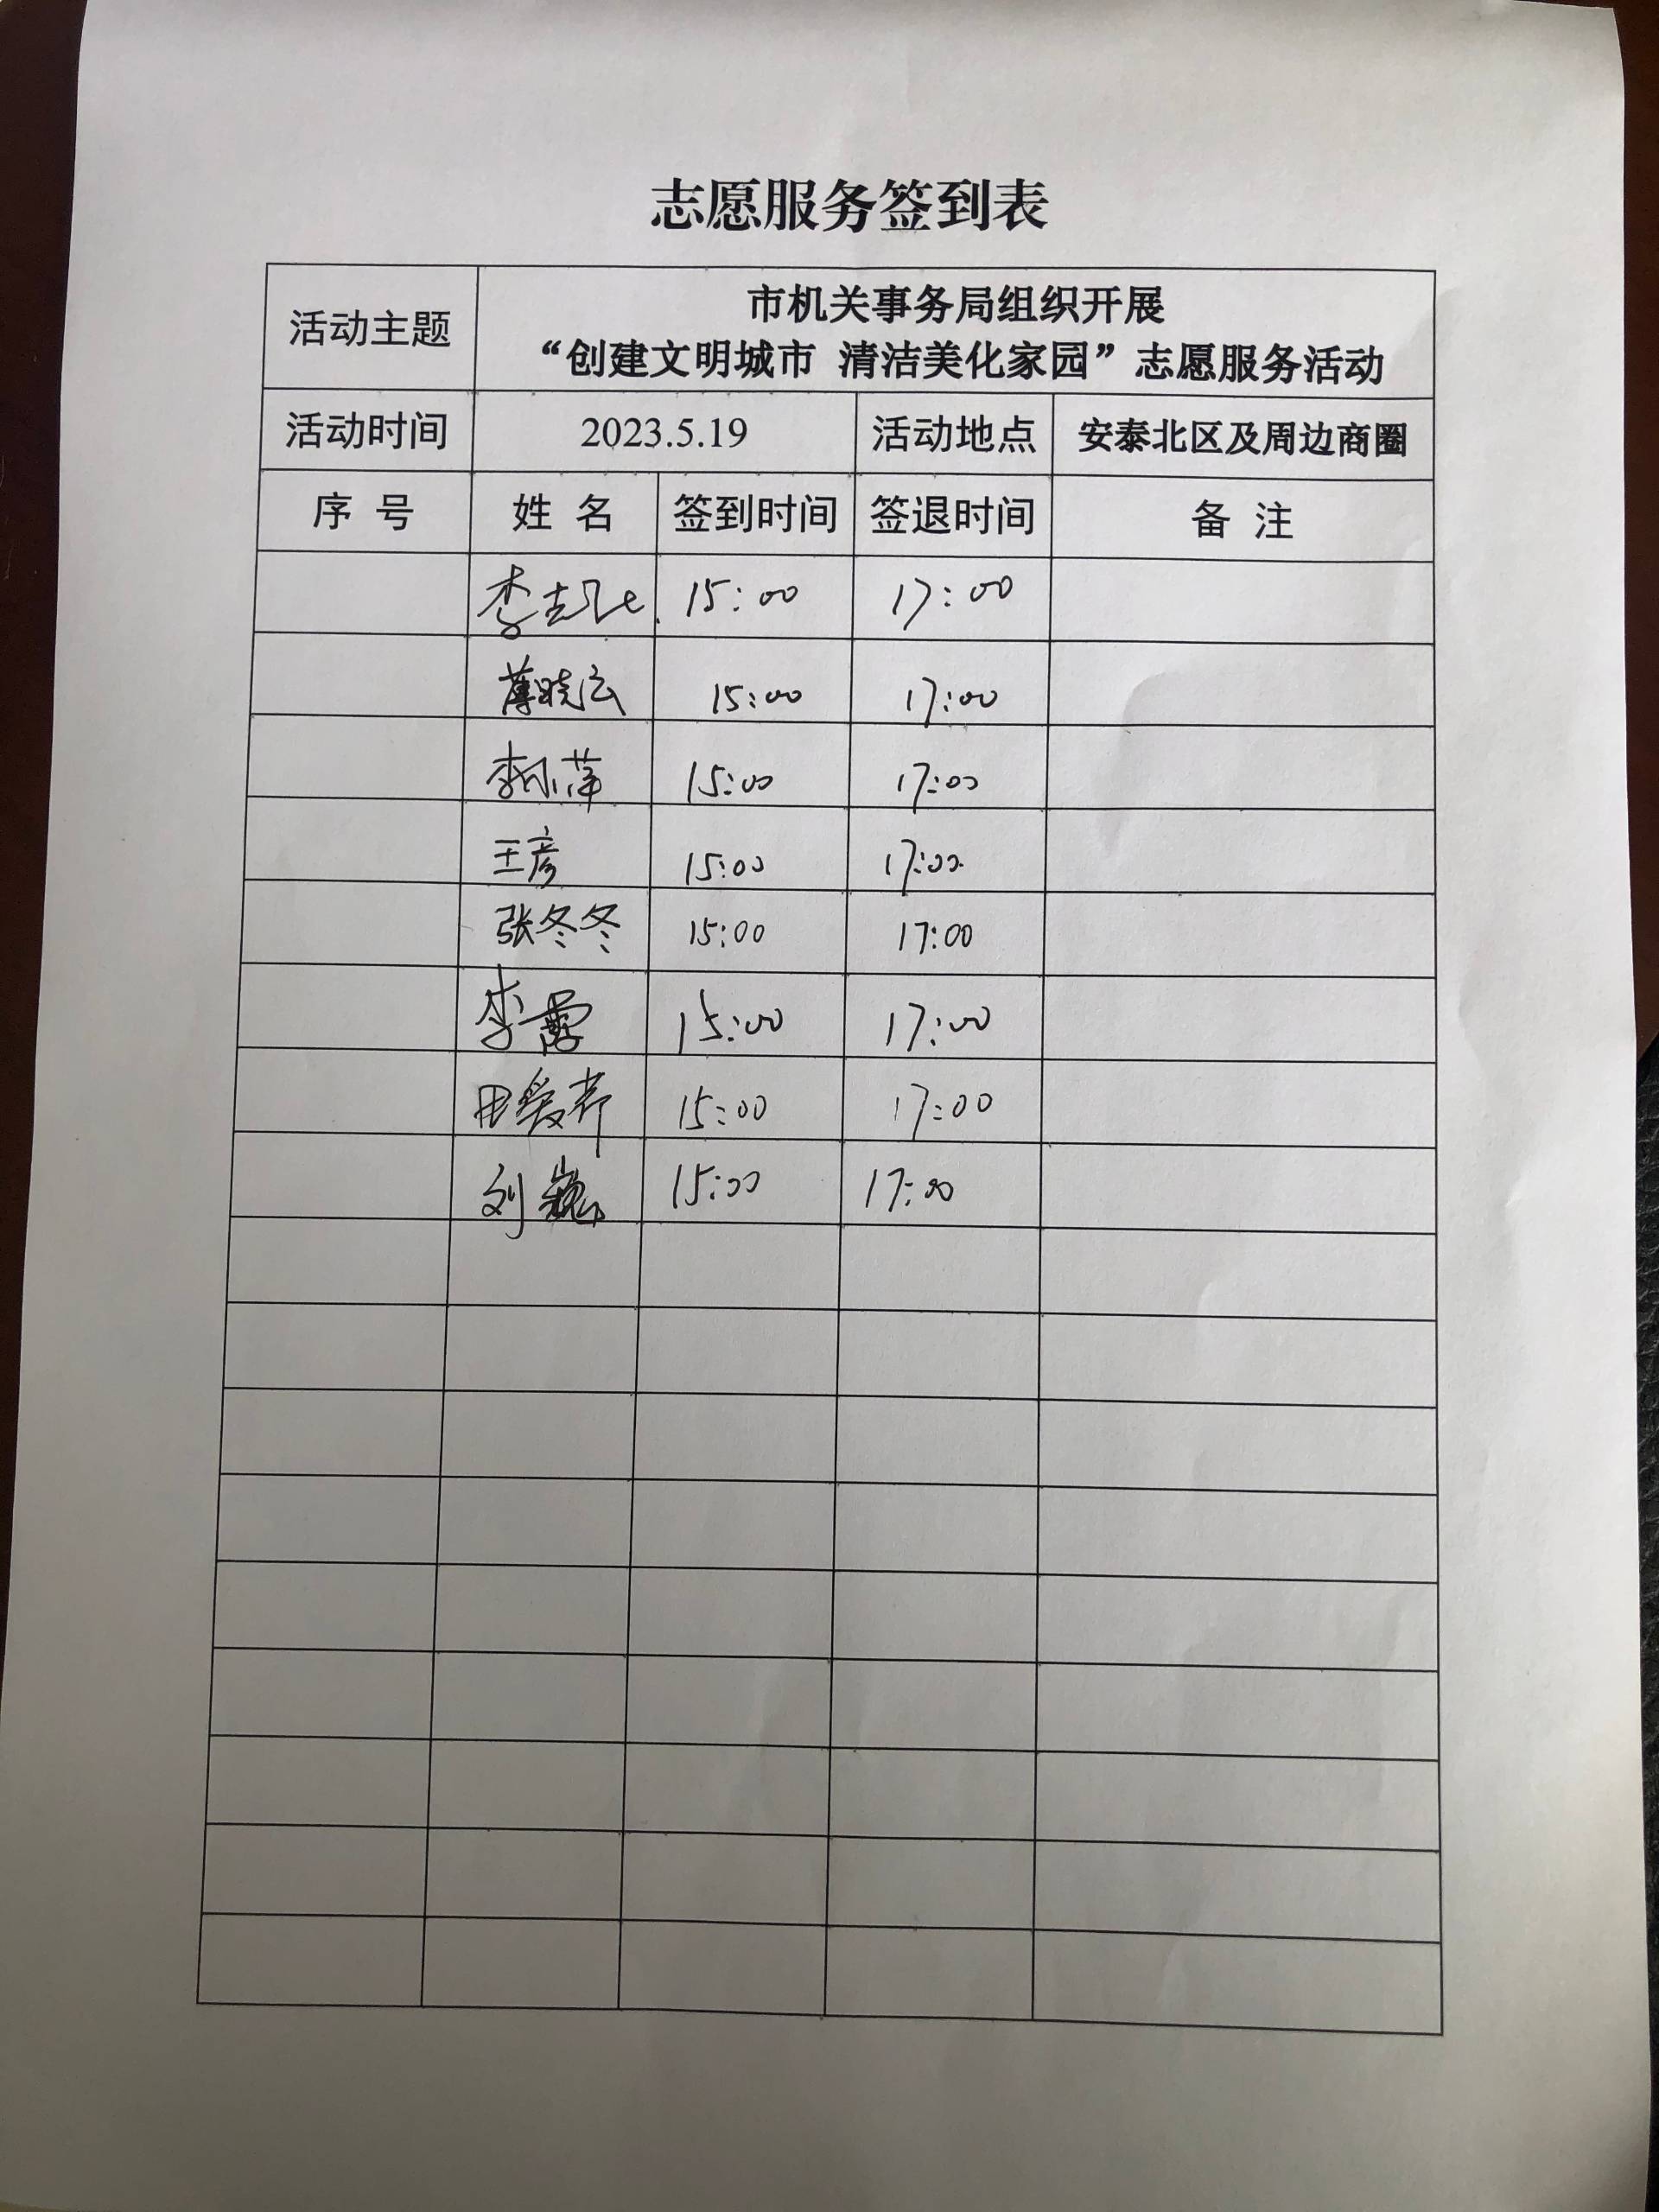 志愿服务签到表
活动主题
市机关事务局组织开展
“创建文明城市 清洁美化家园”志愿服务活动
活动时间 2023.5.19 活动地点 安泰北区及周边商圈
序 号 姓 名 签到时间 签退时间 备 注
李 15:00 17:00
薄晓 15:00 17:00
李 萍 15:00 17:00
王彦 15:00 17:00
张冬冬 15:00 17:00
李蕾 15:00 17:00
田爱 15:00 17:00
刘巍 15:00 17:00